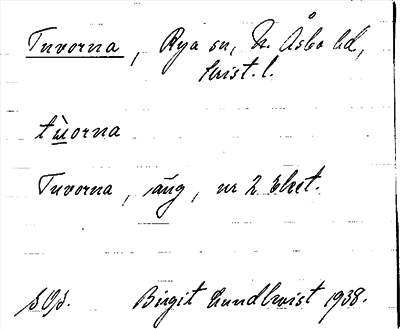 Tuvorna, Rya sn, N. Åsbo hd,
Krist. l.
tùorna
Tuvorna, äng, nr 2
Birgit Lundkvist 1938.